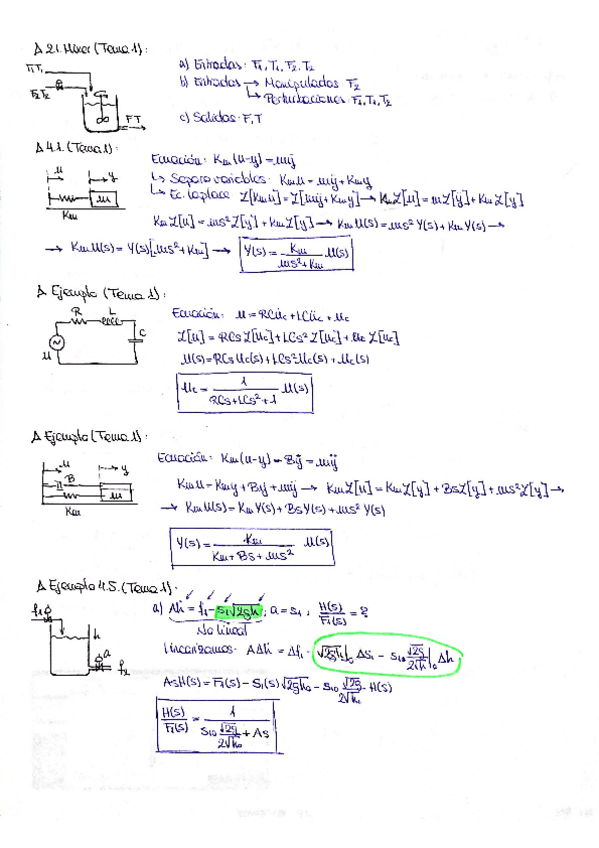 Δ 2.1. Mixer (Tema 1):
F₁, T₁
F₂, T₂
F T
a) Entradas: F₁, T₁, F₂, T₂
b) Entradas → Manipuladas: F₂
↳ Perturbaciones: F₁, T₁, T₂
c) Salidas: F, T
Δ 4.1. (Tema 1):
u y
m
Km
Ecuación: Km(u-y) = mÿ
↳ Separo variables: Km u = mÿ + Km y
↳ Ec. laplace: L[Km u] = L[mÿ + Km y] → Km L[u] = m L[ÿ] + Km L[y]
Km L[u] = ms² L[y] + Km L[y] → Km U(s) = ms² Y(s) + Km Y(s) →
→ Km U(s) = Y(s)[ms² + Km] → Y(s) = Km / (ms² + Km) U(s)
Δ Ejemplo (Tema 1):
R L
C
u
Ecuación: u = RCu̇c + LCüc + uc
L[u] = RCs L[uc] + LCs² L[uc] + uc L[uc]
U(s) = RCs Uc(s) + LCs² Uc(s) + Uc(s)
Uc = 1 / (RCs + LCs² + 1) U(s)
Δ Ejemplo (Tema 1):
u y
B
m
Km
Ecuación: Km(u-y) - Bẏ = mÿ
Km u = Km y + Bẏ + mÿ → Km L[u] = Km L[y] + Bs L[y] + ms² L[y] →
→ Km U(s) = Km Y(s) + Bs Y(s) + ms² Y(s)
Y(s) = Km / (Km + Bs + ms²) U(s)
Δ Ejemplo 4.5. (Tema 1):
f₁
h
a
a) Aḣ = f₁ - s₁√2gh, a = s₁, H(s)/F₁(s) = ?
No lineal
linearizamos: AΔḣ = Δf₁ - √2gh|₀ Δs₁ - s₁₀ √2g/2√h |₀ Δh
AsH(s) = F₁(s) - S₁(s)√2gh₀ - s₁₀ √2g/2√h₀ · H(s)
H(s)/F₁(s) = 1 / (s₁₀ √2g/2√h₀ + As)